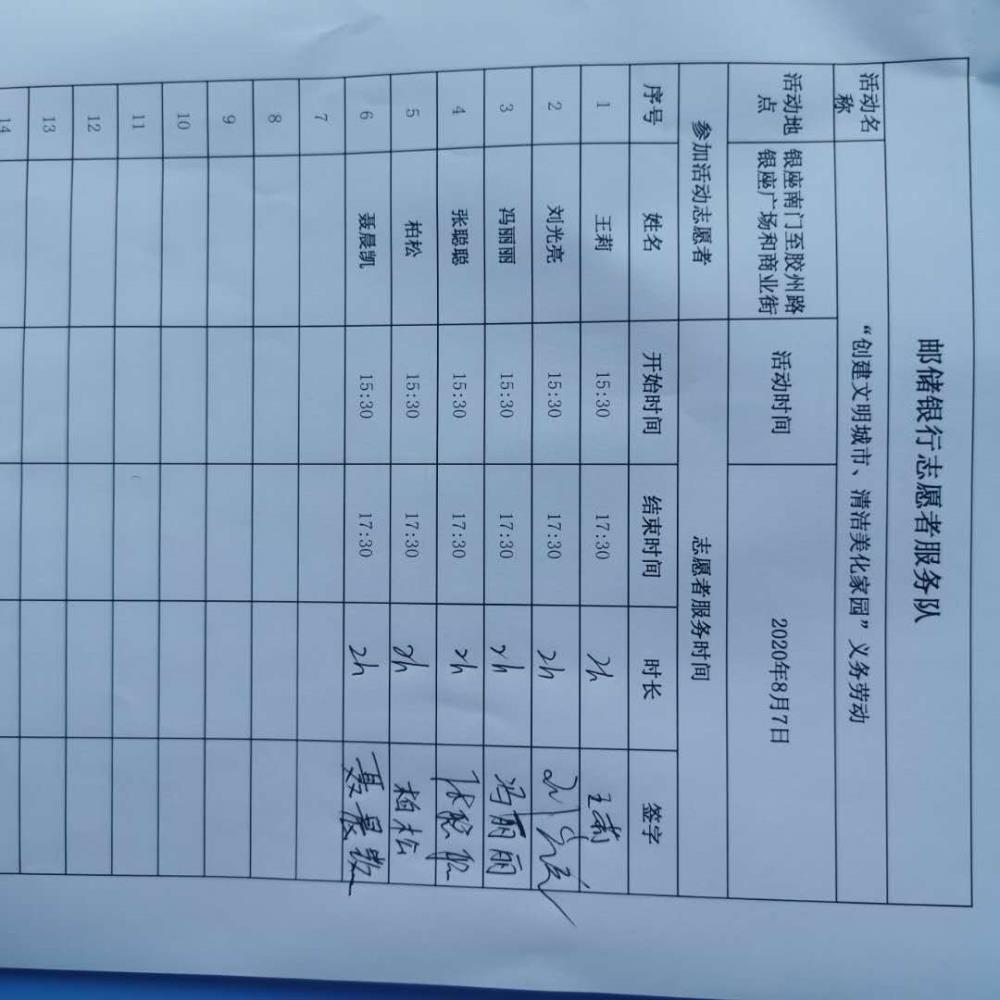 邮储银行志愿者服务队
活动名称 “创建文明城市、清洁美化家园”义务劳动
活动地点 银座南门至胶州路银座广场和商业街 活动时间 2020年8月7日
参加活动志愿者 志愿者服务时间
序号 姓名 开始时间 结束时间 时长 签字
1 王莉 15:30 17:30 2h 王莉
2 刘光亮 15:30 17:30 2h 刘光亮
3 冯丽丽 15:30 17:30 2h 冯丽丽
4 张聪聪 15:30 17:30 2h 张聪聪
5 柏松 15:30 17:30 2h 柏松
6 聂晨凯 15:30 17:30 2h 聂晨凯
7
8
9
10
11
12
13
14